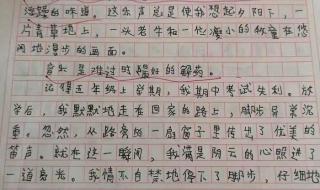 的味道。这乐声总是使我想起夕阳下，一
片青草地上，一头老牛和一个瘦小的牧童在悠
闲地漫步的画面。
音乐是难过时最好的解药。
记得五年级上学期，我期中考试失利。放
学后，我默默地走在回家的路上，脚步异常沉
重。忽然，从路旁的一扇窗子里传出了优美的
笛声。就在这一瞬间，我满是阴云的心照进了
一道亮光。我情不自禁地停下了脚步，仔细地